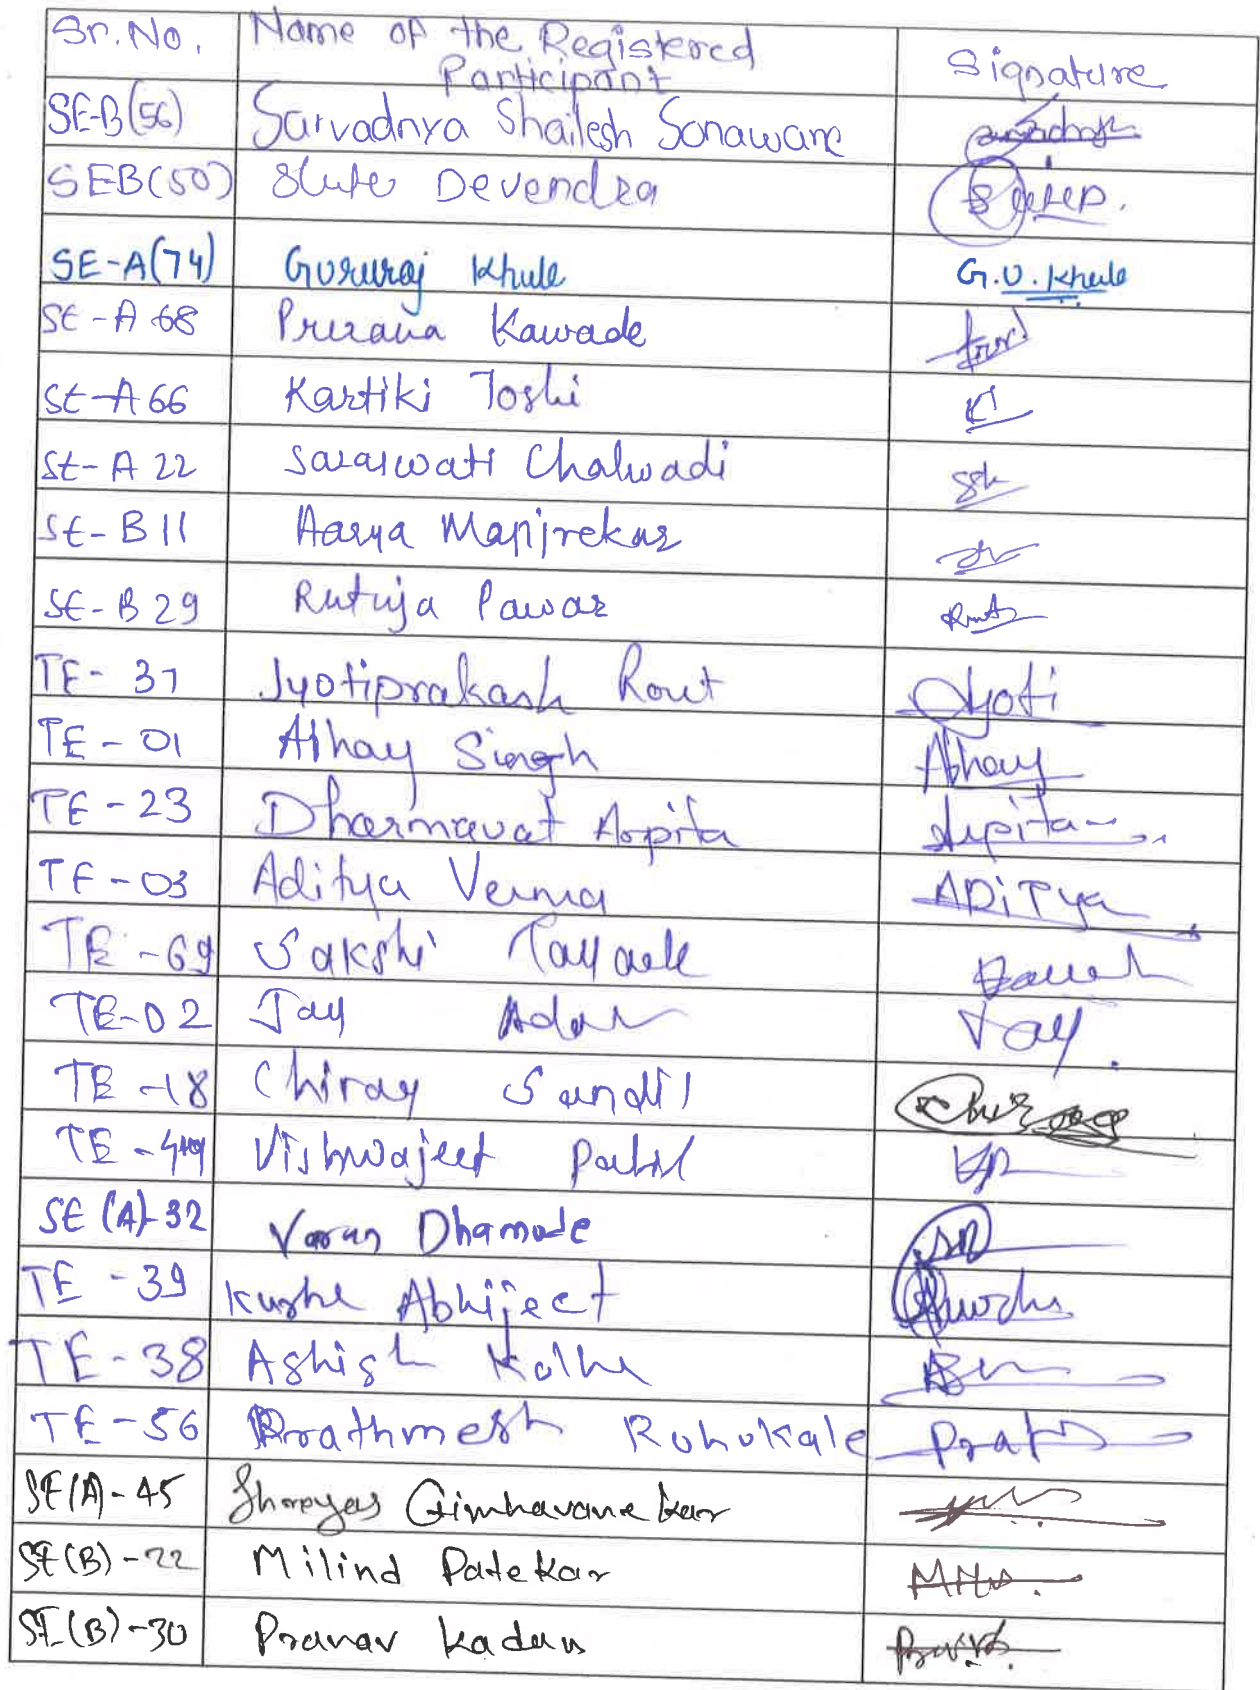 Sr. No. Name of the Registered Participant Signature
SE-B(56) Sarvadnya Shailesh Sonawane
SEB(50) Slute Devendra
SE-A(74) Gururaj Khule G.U.Khule
SE-A 68 Prerana Kawade
SE-A 66 Kartiki Joshi
SE-A 22 Saraswati Chalwadi
SE-B 11 Aarya Manjrekar
SE-B 29 Rutuja Pawar
TE- 37 Jyotiprakash Rout Jyoti
TE - 01 Abhay Singh Abhay
TE - 23 Dharmavat Arpita Arpita
TE - 03 Aditya Verma ADiTya
TE - 69 Sakshi Tayade
TE-02 Jay Jay.
TE -18 Chirag
TE - Vishwajeet Patil VP
SE (A)-32 Varun Dhamode
TE - 39 Kushe Abhijeet
TE - 38 Ashish Kolhe
TE - 56 Prathmesh Rohokale Prat
SE(A)-45 Shreyas Gimhavanekar
SE(B)-22 Milind Patekar
SE(B)-30 Pranav Kadam